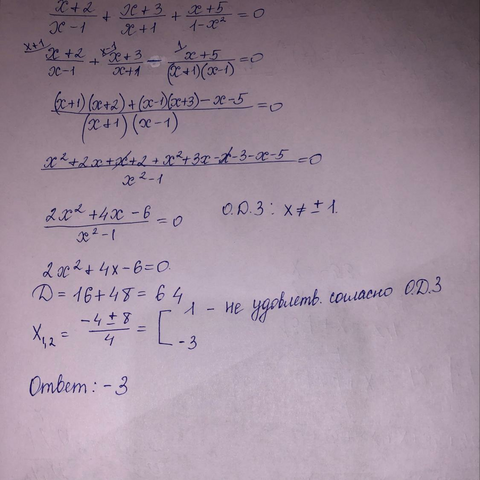 (x+2)/(x-1) + (x+3)/(x+1) + (x+5)/(1-x²) = 0
x+1\ (x+2)/(x-1) + x-1\ (x+3)/(x+1) - 1\ (x+5)/((x+1)(x-1)) = 0
((x+1)(x+2)+(x-1)(x+3)-x-5)/((x+1)(x-1)) = 0
(x²+2x+x+2+x²+3x-x-3-x-5)/(x²-1) = 0
(2x²+4x-6)/(x²-1) = 0 О.Д.З: x≠±1.
2x²+4x-6=0.
D=16+48=64
X₁,₂ = (-4±8)/4 = [ 1 - не удовлетв. согласно О.Д.З
-3
Ответ: -3